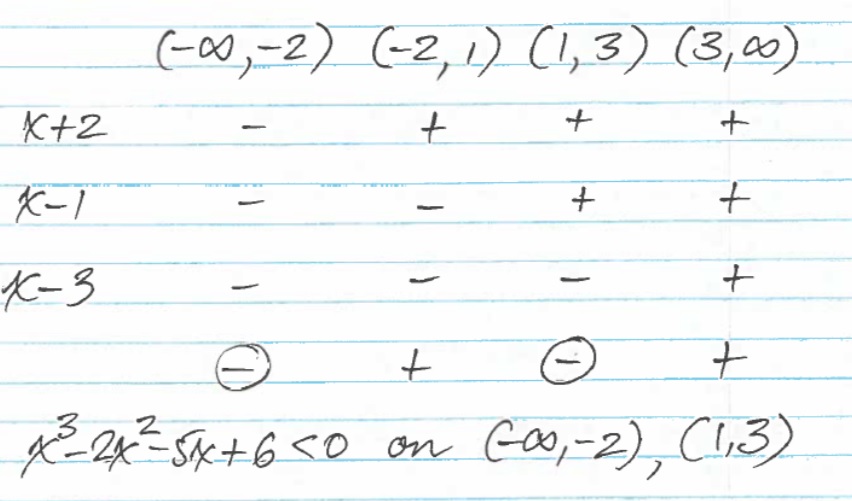 (-∞,-2) (-2,1) (1,3) (3,∞)
x+2 - + + +
x-1 - - + +
x-3 - - - +
⊖ + ⊖ +
x³-2x²-5x+6<0 on (-∞,-2), (1,3)